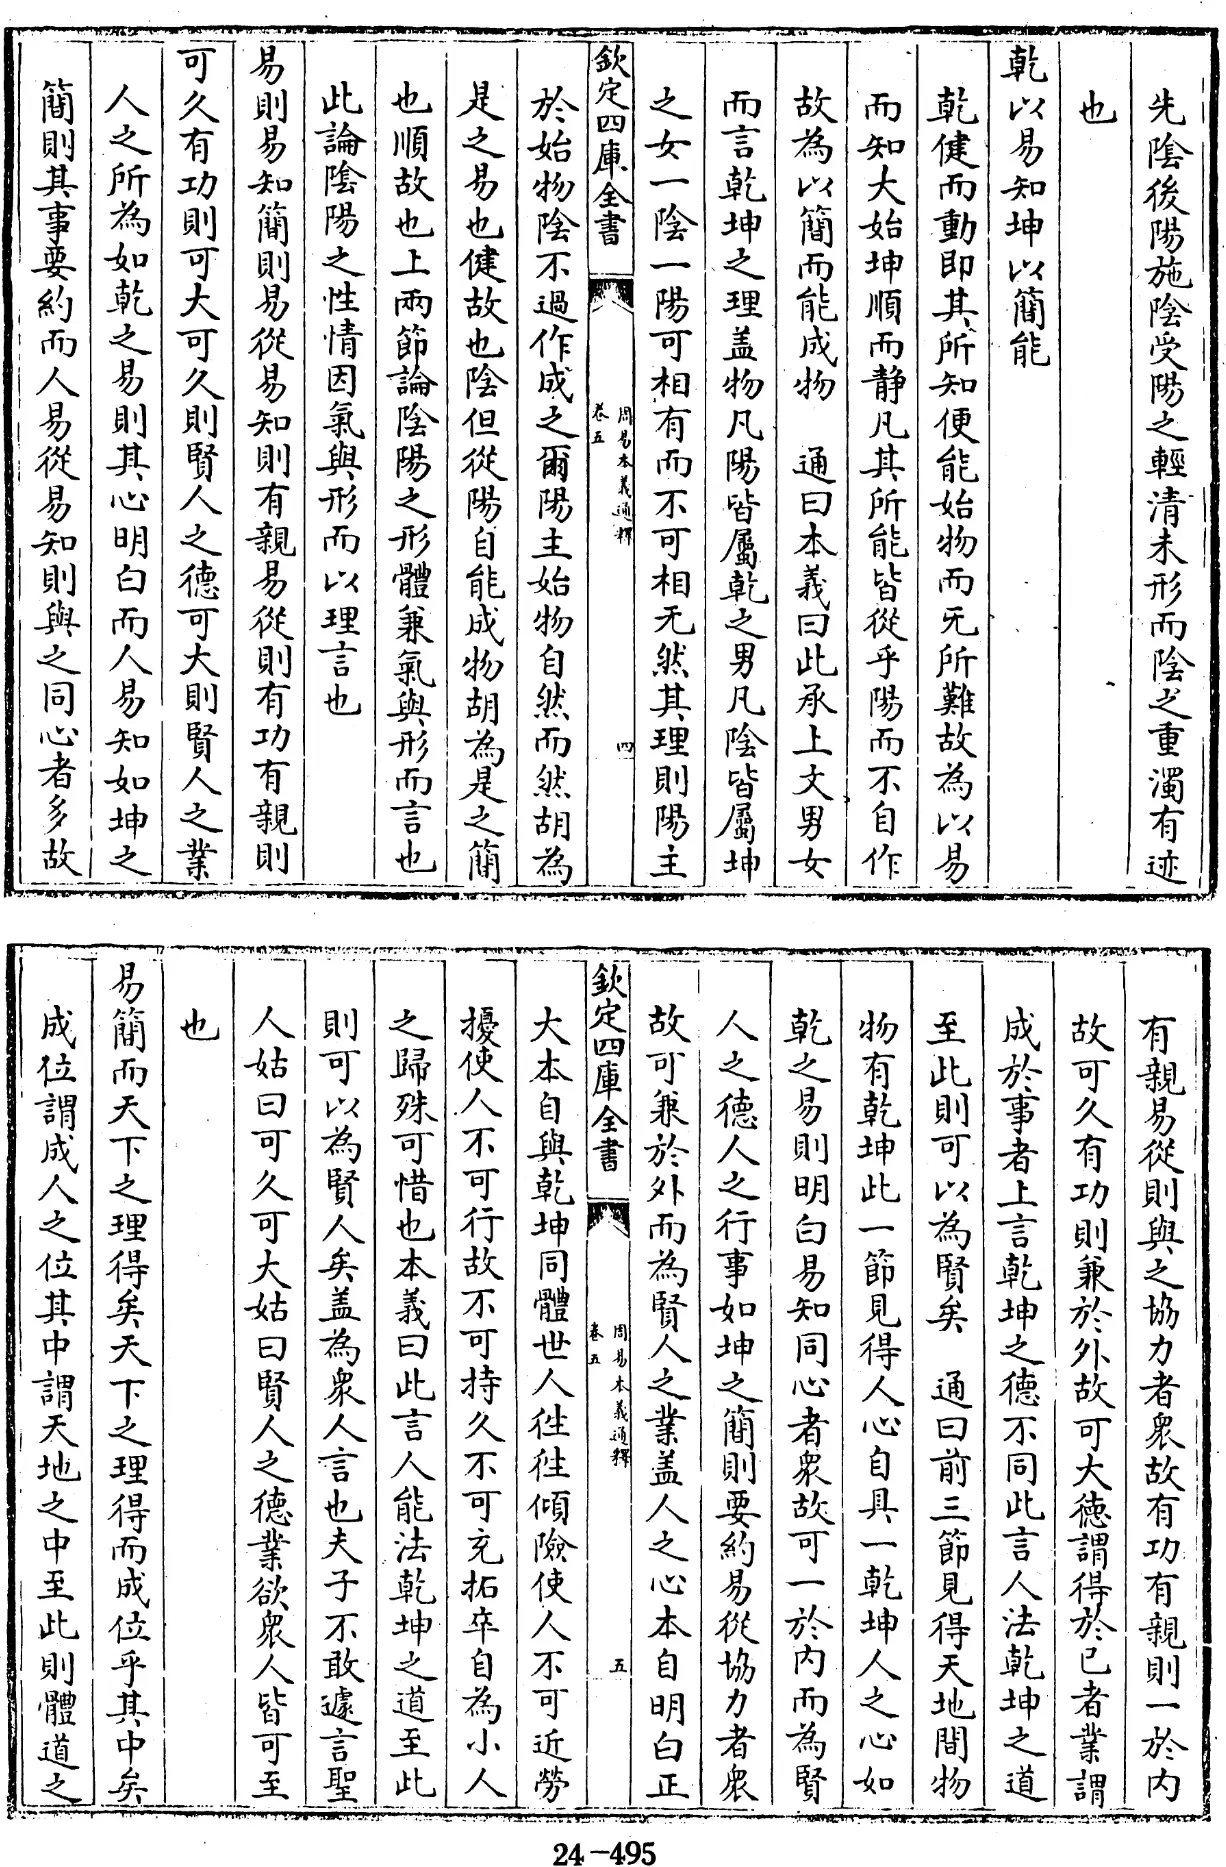 先陰後陽施陰受陽之輕清未形而陰之重濁有迹
也
乾以易知坤以簡能
乾健而動即其所知便能始物而无所難故為以易
而知大始坤順而静凡其所能皆從乎陽而不自作
故為以簡而能成物　通曰本義曰此承上文男女
而言乾坤之理盖物凡陽皆屬乾之男凡陰皆屬坤
之女一陰一陽可相有而不可相无然其理則陽主
欽定四庫全書
周易本義通釋
卷五
四
於始物陰不過作成之爾陽主始物自然而然胡為
是之易也健故也陰但從陽自能成物胡為是之簡
也順故也上兩節論陰陽之形體兼氣與形而言也
此論陰陽之性情因氣與形而以理言也
易則易知簡則易從易知則有親易從則有功有親則
可久有功則可大可久則賢人之德可大則賢人之業
人之所為如乾之易則其心明白而人易知如坤之
簡則其事要約而人易從易知則與之同心者多故
有親易從則與之協力者衆故有功有親則一於内
故可久有功則兼於外故可大德謂得於已者業謂
成於事者上言乾坤之德不同此言人法乾坤之道
至此則可以為賢矣　通曰前三節見得天地間物
物有乾坤此一節見得人心自具一乾坤人之心如
乾之易則明白易知同心者衆故可一於内而為賢
人之德人之行事如坤之簡則要約易從協力者衆
故可兼於外而為賢人之業盖人之心本自明白正
欽定四庫全書
周易本義通釋
卷五
五
大本自與乾坤同體世人徃徃傾險使人不可近勞
擾使人不可行故不可持久不可充拓卒自為小人
之歸殊可惜也本義曰此言人能法乾坤之道至此
則可以為賢人矣盖為衆人言也夫子不敢遽言聖
人姑曰可久可大姑曰賢人之德業欲衆人皆可至
也
易簡而天下之理得矣天下之理得而成位乎其中矣
成位謂成人之位其中謂天地之中至此則體道之
24-495